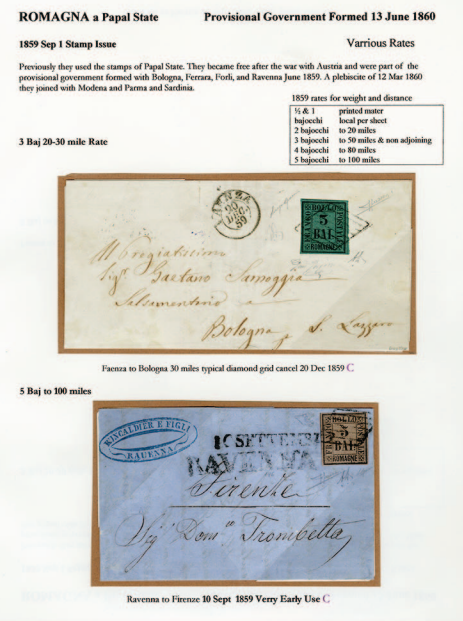 ROMAGNA a Papal State Provisional Government Formed 13 June 1860
1859 Sep 1 Stamp Issue Varrious Rates
Previously they used the stamps of Papal State. They became free after the war with Austria and were part of the
provisional government formed with Bologna, Ferrara, Forli, and Ravenna June 1859. A plebiscite of 12 Mar 1860
they joined with Modena and Parma and Sardinia.
1859 rates for weight and distance
½ & 1 printed mater
bajocchi local per sheet
2 bajocchi to 20 miles
3 bajocchi to 50 miles & non adjoining
4 bajocchi to 80 miles
5 bajocchi to 100 miles
3 Baj 20-30 mile Rate
FAENZA
20
DEC
59
BOLLO
FRANCO
3
BAI
POSTALE
ROMAGNE
Gaetano Samoggia
Bologna S. Lazzaro
Faenza to Bologna 30 miles typical diamond grid cancel 20 Dec 1859 C
5 Baj to 100 miles
E FIGLI
RAVENNA
10 SETTEMBRE
RAVENNA
BOLLO
FRANCO
5
BAI
POSTALE
ROMAGNE
Firenze
Sig. Dom.co Trombetta
Ravenna to Firenze 10 Sept 1859 Verry Early Use C